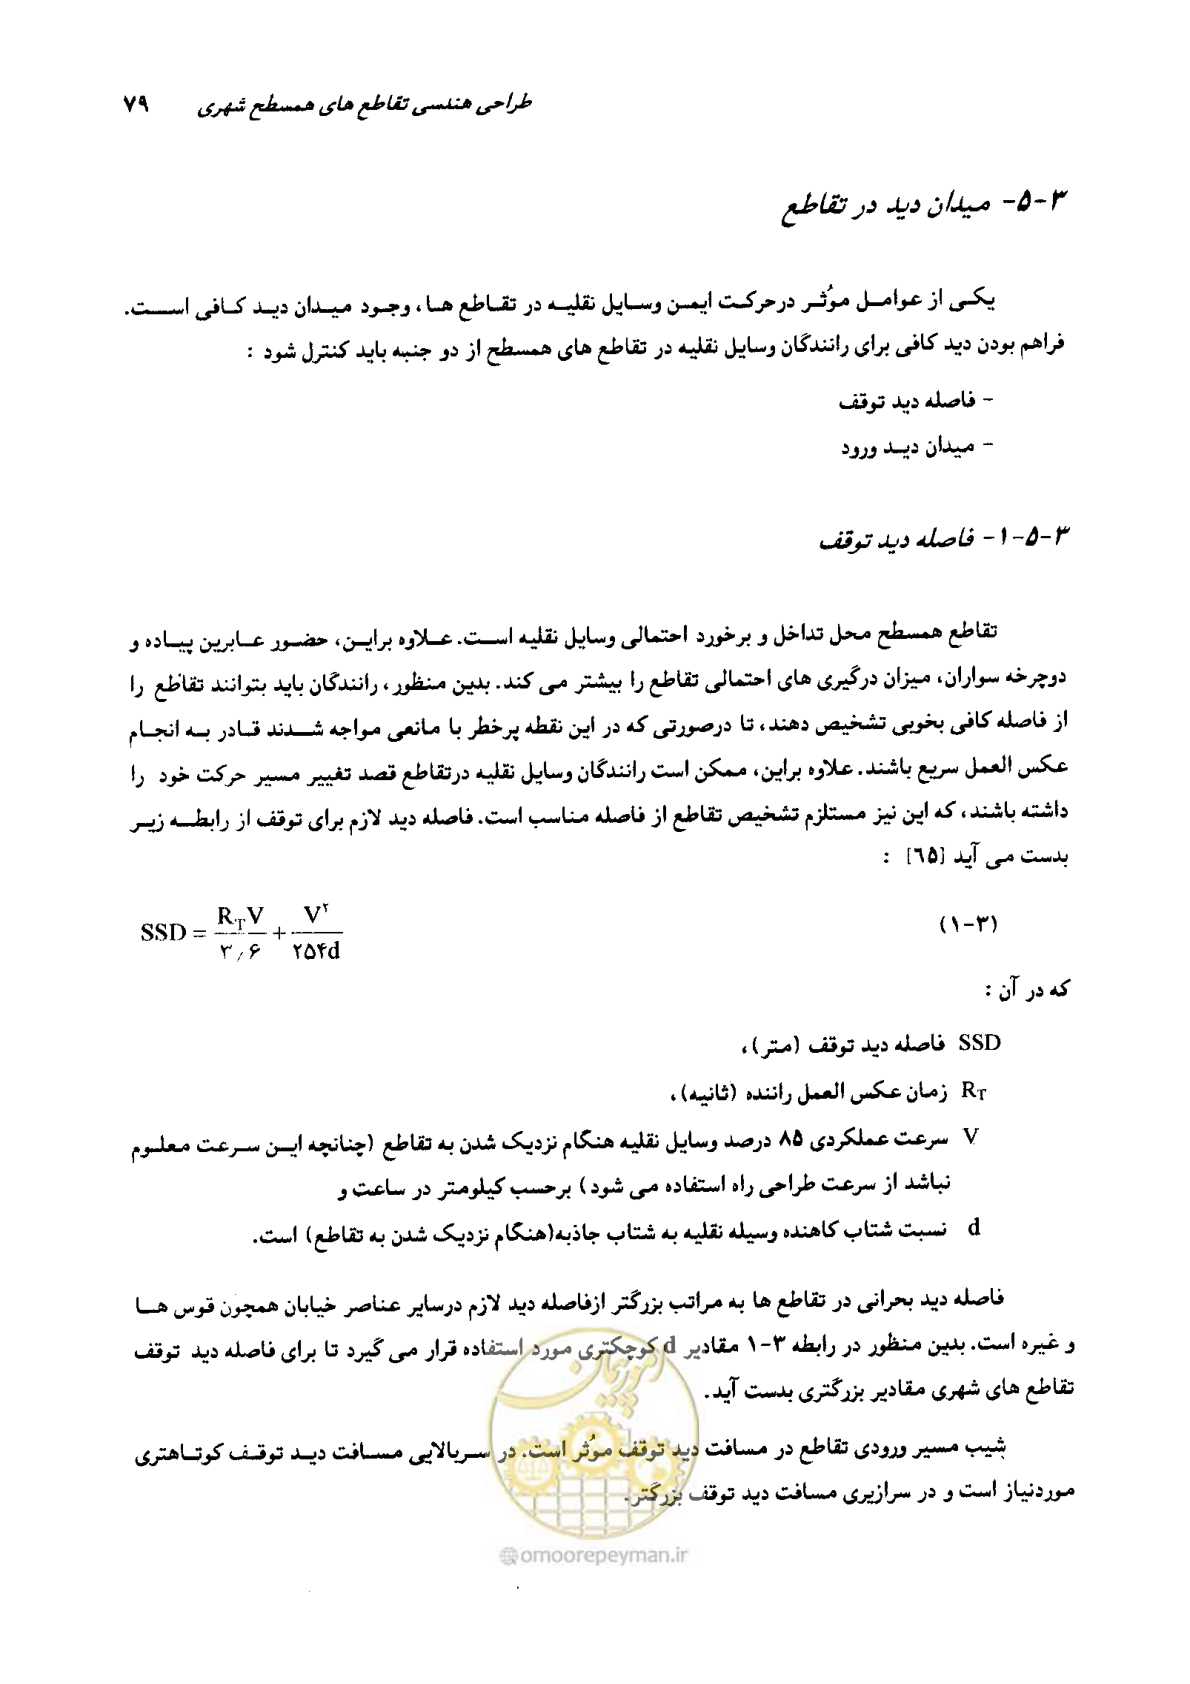 طراحی هندسی تقاطع های همسطح شهری ۷۹
۳-۵- میدان دید در تقاطع
یکی از عوامل مؤثر درحرکت ایمن وسایل نقلیه در تقاطع ها، وجود میدان دید کافی است.
فراهم بودن دید کافی برای رانندگان وسایل نقلیه در تقاطع های همسطح از دو جنبه باید کنترل شود :
- فاصله دید توقف
- میدان دید ورود
۳-۵-۱- فاصله دید توقف
تقاطع همسطح محل تداخل و برخورد احتمالی وسایل نقلیه است. علاوه براین، حضور عابرین پیاده و
دوچرخه سواران، میزان درگیری های احتمالی تقاطع را بیشتر می کند. بدین منظور، رانندگان باید بتوانند تقاطع را
از فاصله کافی بخوبی تشخیص دهند، تا درصورتی که در این نقطه پرخطر با مانعی مواجه شدند قادر به انجام
عکس العمل سریع باشند. علاوه براین، ممکن است رانندگان وسایل نقلیه درتقاطع قصد تغییر مسیر حرکت خود را
داشته باشند، که این نیز مستلزم تشخیص تقاطع از فاصله مناسب است. فاصله دید لازم برای توقف از رابطه زیر
بدست می آید [۶۵] :
(۳-۱) SSD = R_T V / ۳٫۶ + V^۲ / ۲۵۴d
که در آن :
SSD فاصله دید توقف (متر)،
R_T زمان عکس العمل راننده (ثانیه)،
V سرعت عملکردی ۸۵ درصد وسایل نقلیه هنگام نزدیک شدن به تقاطع (چنانچه این سرعت معلوم
نباشد از سرعت طراحی راه استفاده می شود) برحسب کیلومتر در ساعت و
d نسبت شتاب کاهنده وسیله نقلیه به شتاب جاذبه(هنگام نزدیک شدن به تقاطع) است.
فاصله دید بحرانی در تقاطع ها به مراتب بزرگتر ازفاصله دید لازم درسایر عناصر خیابان همچون قوس ها
و غیره است. بدین منظور در رابطه ۳-۱ مقادیر d کوچکتری مورد استفاده قرار می گیرد تا برای فاصله دید توقف
تقاطع های شهری مقادیر بزرگتری بدست آید.
شیب مسیر ورودی تقاطع در مسافت دید توقف مؤثر است. در سربالایی مسافت دید توقف کوتاهتری
موردنیاز است و در سرازیری مسافت دید توقف بزرگتر.
امور پیمان
@omoorepeyman.ir